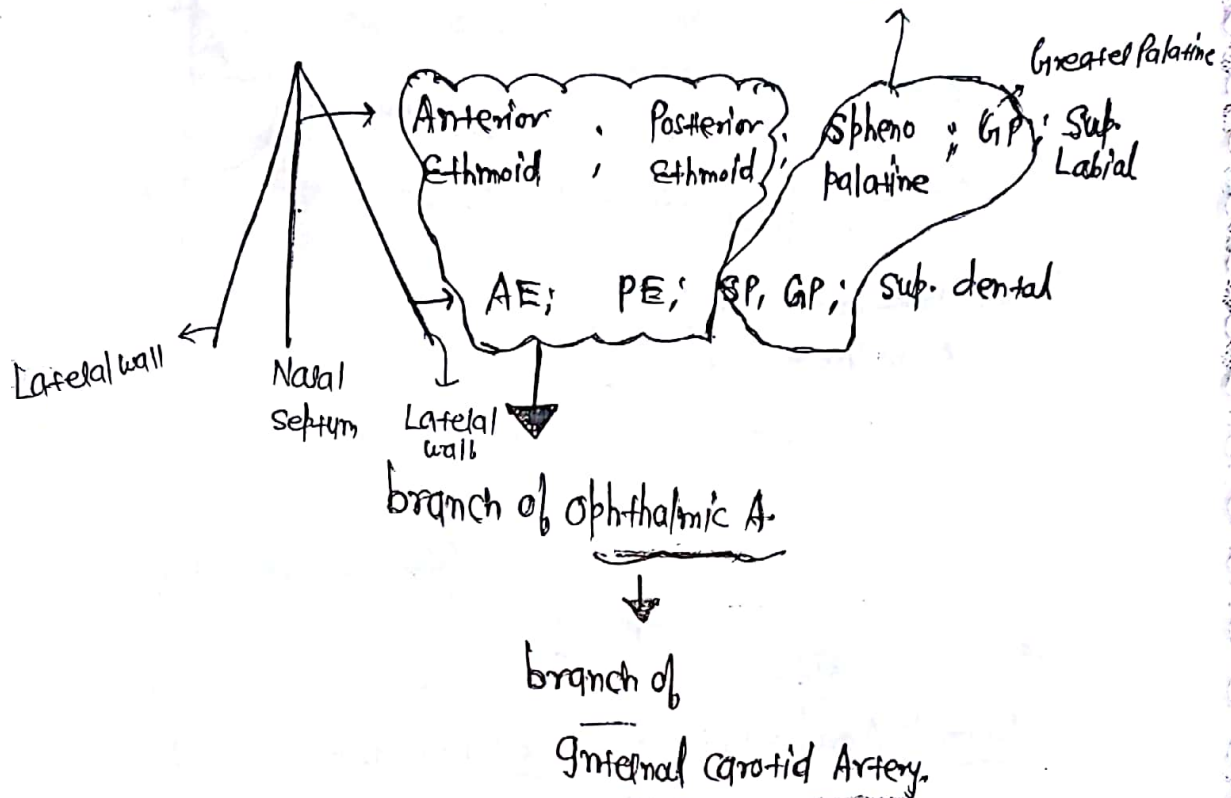 Greater Palatine
Anterior , Posterior ; Spheno ; GP ; Sup.
Ethmoid , Ethmoid ; palatine Labial
AE; PE; SP, GP; Sup. dental
Lateral wall
Nasal
Septum
Lateral
wall
branch of ophthalmic A.
branch of
Internal carotid Artery.